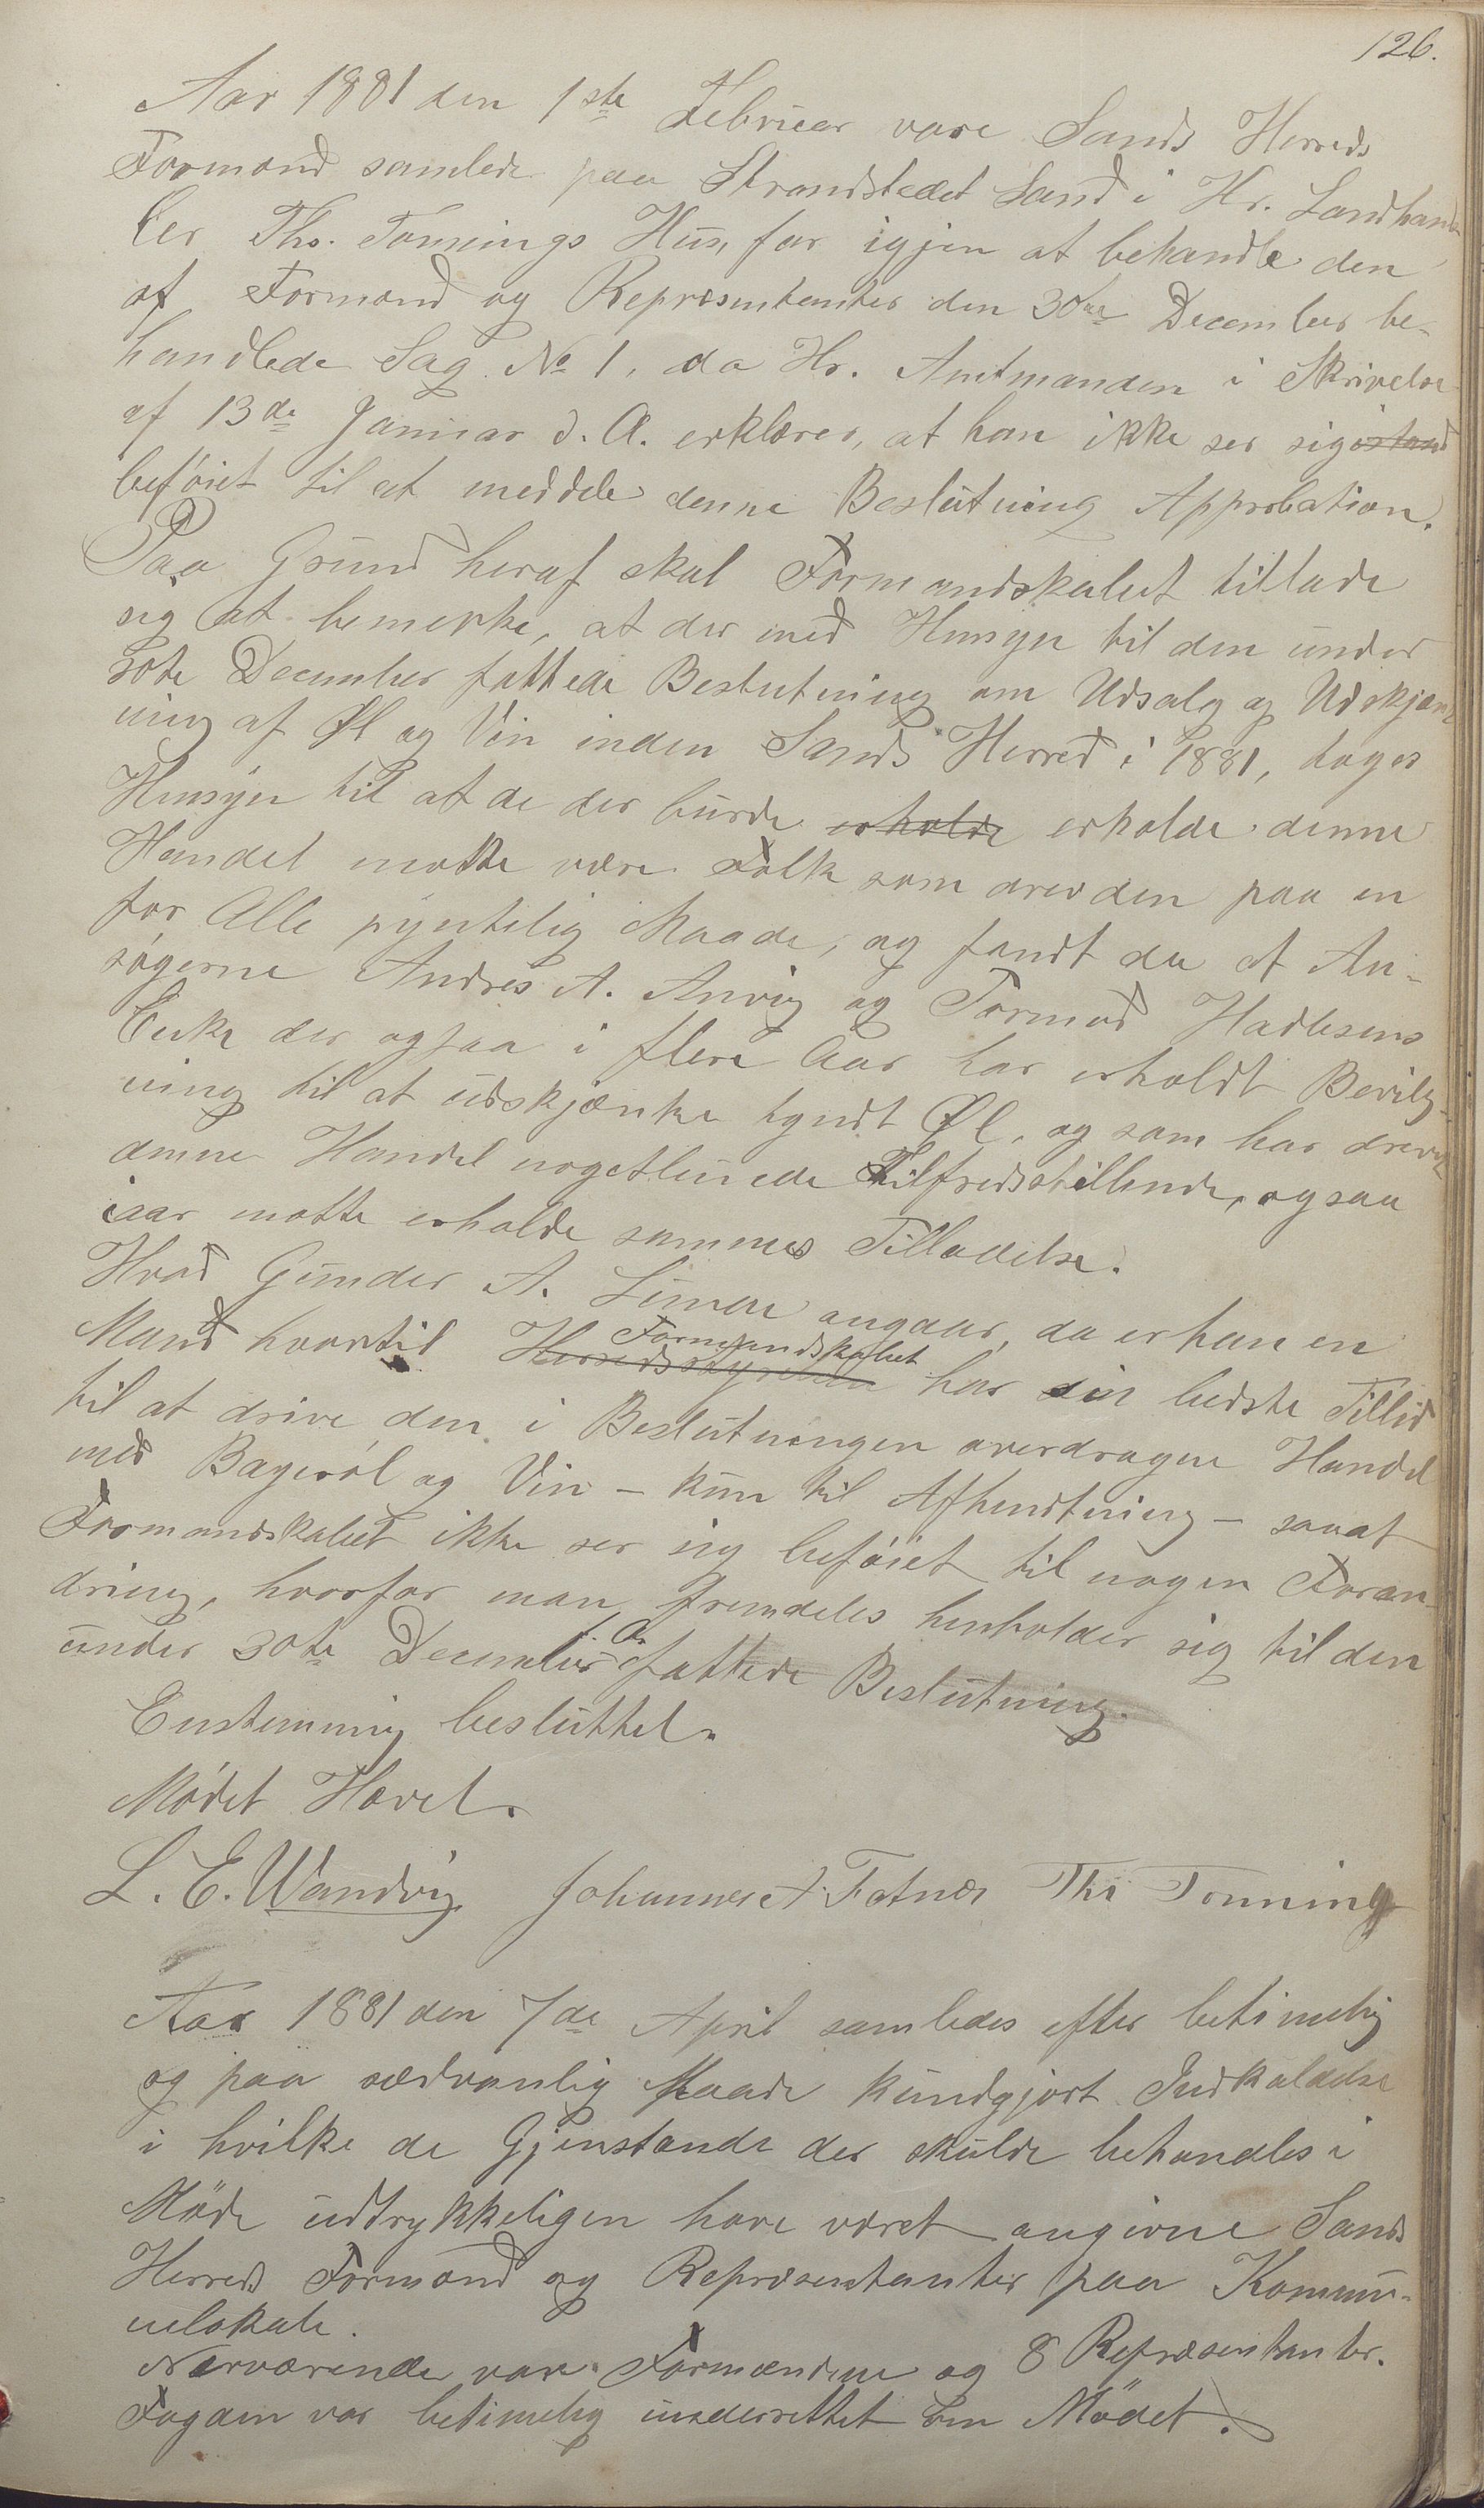 126.
Aar 1881 den 1ste Februar vare Sands Herreds
Formænd samlede paa Strandstedet Sand i Hr. Landhand
ler Ths. Tønnings Hus, for igjen at behandle den
af Formænd og Repræsentanter den 30te December be-
handlede Sag No 1, da Hr. Amtmanden i Skrivelse
af 13de Januar d. A. erklærer, at han ikke ser sig istand
beføiet til at meddele denne Beslutning Approbation.
Paa Grund heraf skal Formandskabet tillade
sig at bemerke, at der med Hensyn til den under
30te December fattede Beslutning om Udsalg og Udskjænk
ning af Øl og Vin inden Sands Herred i 1881, toges
Hensyn til at de der burde erholde erholde denne
Handel maatte være Folk som drev den paa en
for Alle pyntelig Maade, og fandt da at An-
søgerne Andres A. Anvig og Tormod Hadlesens
Enke der ogsaa i flere Aar har erholdt Bevilg-
ning til at udskjænke tyndt Øl, og som har drevet
denne Handel nogetlunede Tilfredsstillende, ogsaa
iaar maatte erholde sammes Tilladelse.
Hvad Gunder A. Limere angaar, da er han en
Mand hvortil Herredsstyrelsen Formandskabet har sin bedste Tillid
til at drive den i Beslutningen overdragne Handel
med Bayerøl og Vin – kun til Afhendtning – saaat
Formandskabet ikke ser sig beføiet til nogen Foran-
dring, hvorfor man fremdeles henholder sig til den
under 30te December f. A. fattede Beslutning.
Enstemmig besluttet.
Mødet Hævet.
L. E. Wandvig Johannes A. Fatnes Ths Tønning
Aar 1881 den 7de April samledes efter betimelig
og paa sædvanlig Maade kundgjort Indkaldelse
i hvilke de Gjenstande der skulde behandles i
Møde udtrykkeligen have været angivne Sands
Herreds Formænd og Repræsentanter paa Kommu-
nelokale.
Nærværende var Formændene og 8 Repræsentanter.
Fogden var betimelig underrettet om Mødet.